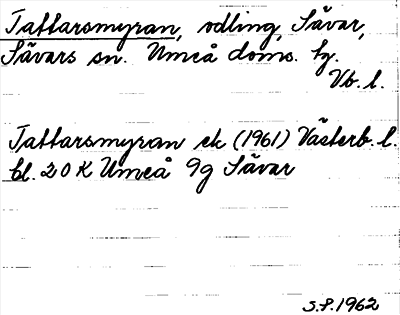 Tattarsmyran, odling, Sävar,
Sävars sn. Umeå doms. hg.
Vb. l.
Tattarsmyran ek (1961) Västerb. l.
bl. 20 K Umeå 9g Sävar
S.P. 1962